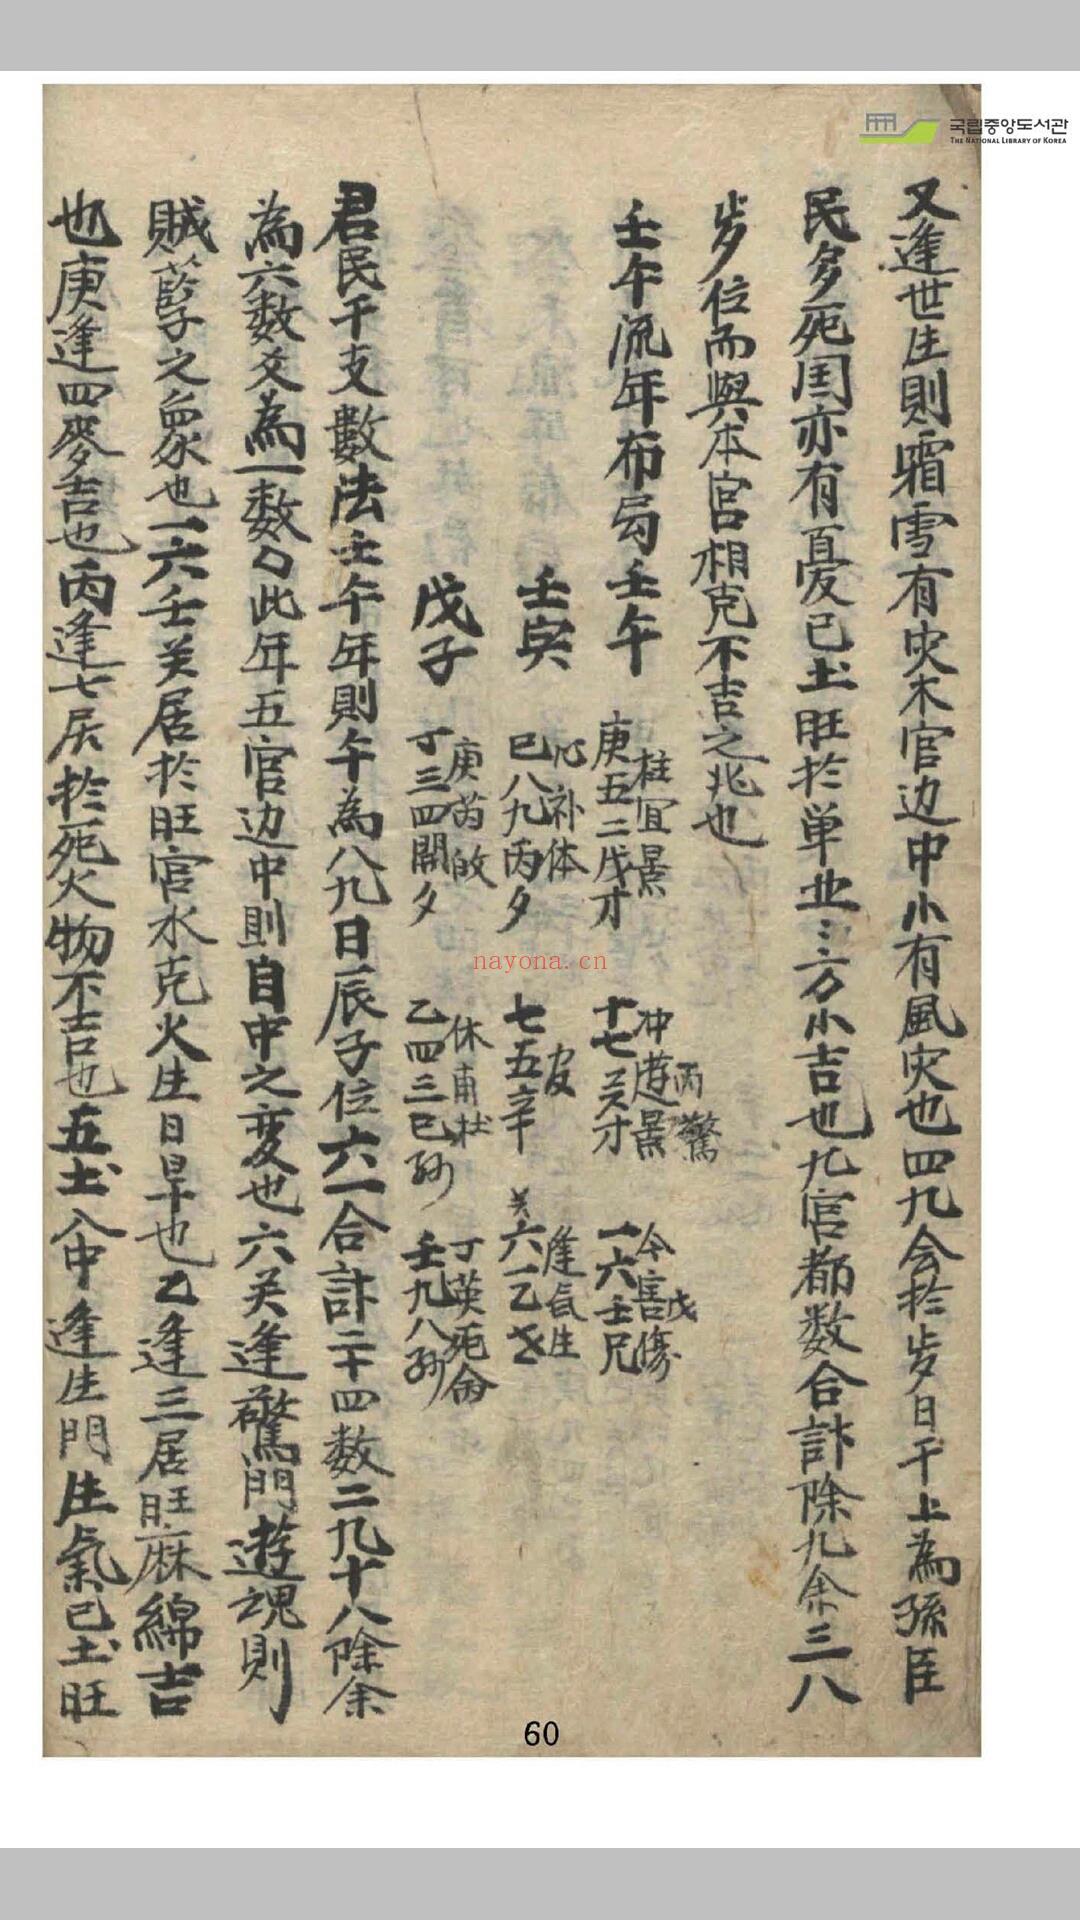 국립중앙도서관
THE NATIONAL LIBRARY OF KOREA
又逢世生則霜雪有灾木官边中小有風灾也四九会於岁日干上為孫臣
民多死国亦有憂己土旺於单北二三方小吉也九宫都数合計除九余三八
岁位而與本宮相克不吉之兆也
壬午流年布局壬午
柱宜景
庚五二戊才
冲遊景
丙驚
十七关才
今害傷
戊
一六壬兄
壬寅
心补体
己八九丙夕
七五辛
逢気生
六一乙
戊子
庚芮啟
丁三四開夕
休甫杜
乙四三己孙
丁英死命
壬九八孙
君民干支數法壬午年則午為八九日辰子位六一合計二十四数二九十八除余
為六数爻為一数此年五官边中則自中之变也六关逢驚門遊魂則
賊孽之象也一六壬关居於旺宮水克火生日旱也乙逢三居旺麻綿吉
也庚逢四麥吉也丙逢七居於死火物不吉也五土入中逢生門生氣己土旺
nayona.cn
60